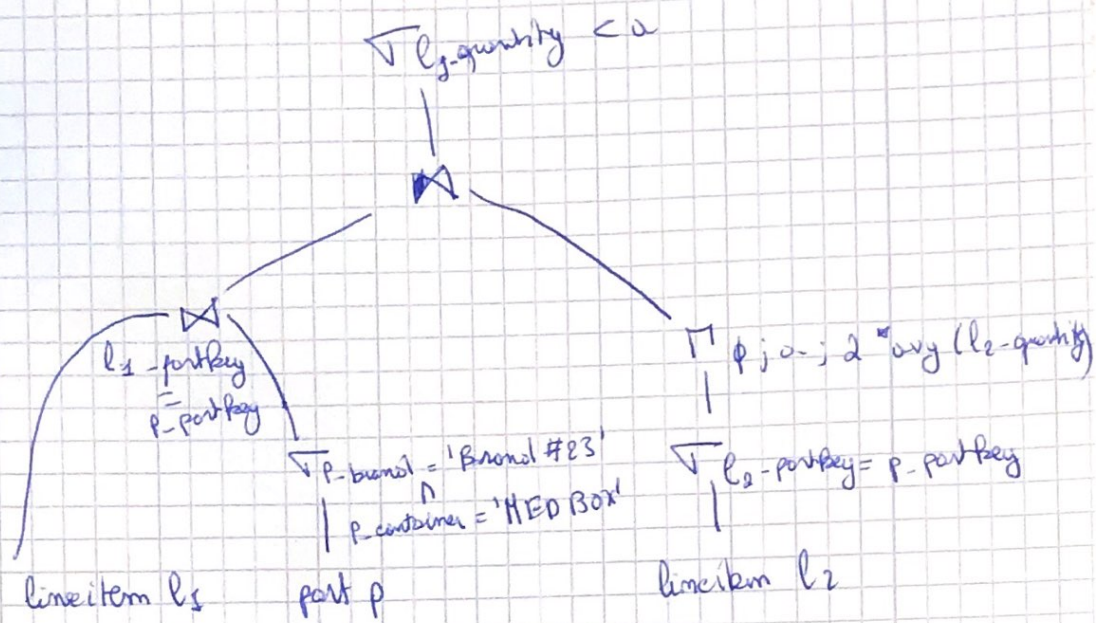 σ l1-quantity < a
⋈
⋈
l1-partkey
=
p-partkey
Π ∅ ; a ; 2 * avg (l2-quantity)
σ p-brand = 'Brand #23'
∧
p-container = 'MED BOX'
σ l2-partkey = p-partkey
lineitem l1
part p
lineitem l2